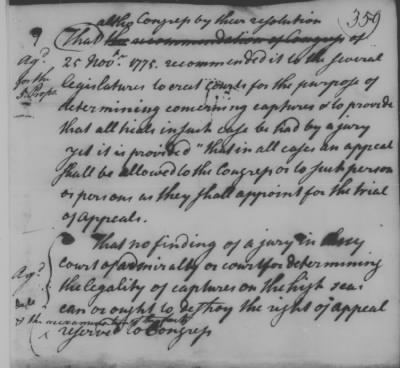 altho Congress by their resolution
(359)
That the recommendation of Congress of
25 Novr. 1775. recommended it to the several
legislatures to erect courts for the purpose of
determining concerning captures & to provide
that all trials in such case be had by a jury
yet it is provided "that in all cases an appeal
shall be allowed to the Congress or to such person
or persons as they shall appoint for the trial
of appeals.
That no finding of a jury in any
court of admiralty or court for determining
the legality of captures on the high seas
can or ought to destroy the right of appeal
reserved to Congress
Agd.
for the
Agd.